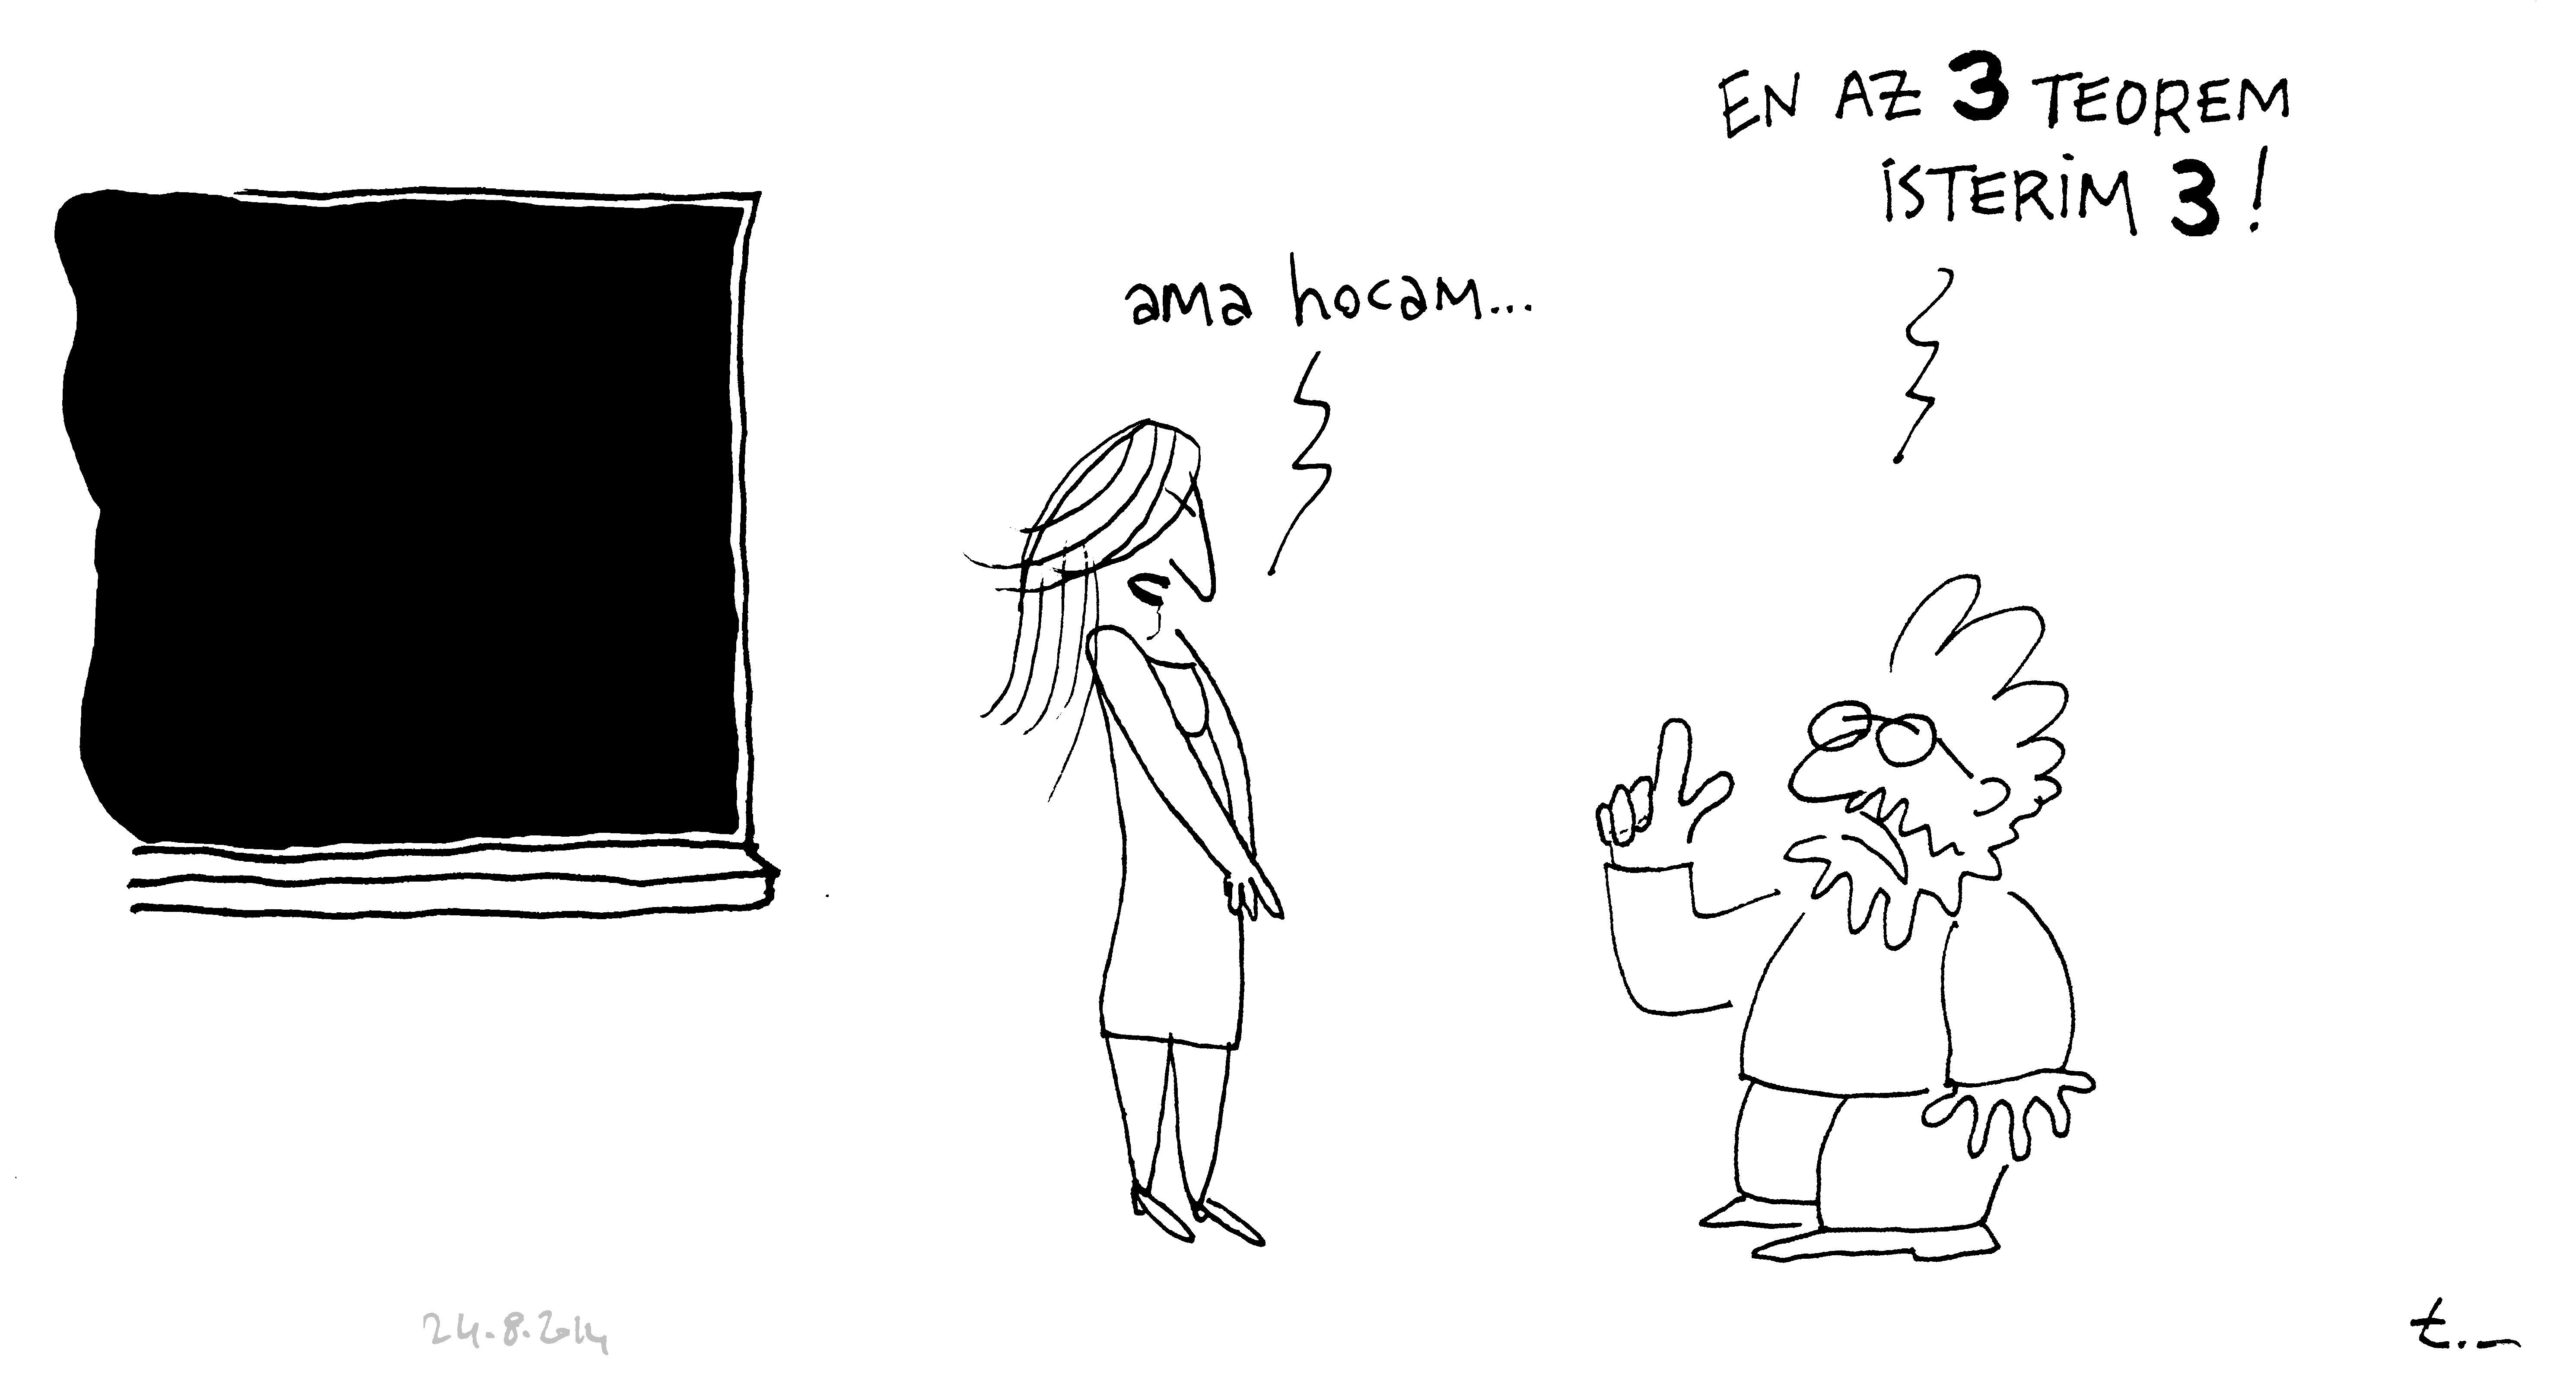 EN AZ 3 TEOREM
İSTERİM 3!
ama hocam...
24.8.2014
t.-